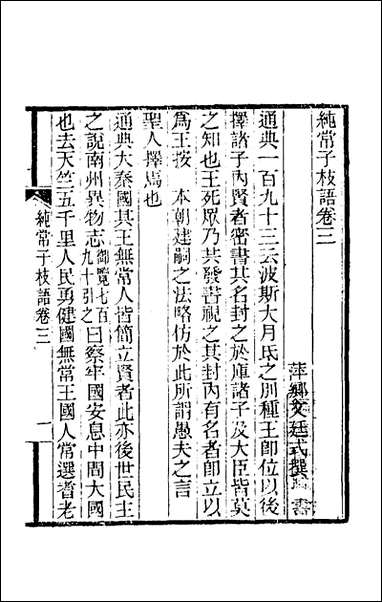 純常子枝語卷三
萍鄉文廷式撰
通典一百九十三云波斯大月氏之別種王卽位以後
擇諸子內賢者密書其名封之於庫諸子及大臣皆莫
之知也王死眾乃共發書視之其封內有名者卽立以
爲王按 本朝建嗣之法略仿於此所謂愚夫之言
聖人擇焉也
通典大秦國其王無常人皆簡立賢者此亦後世民主
之說南州異物志御覽七百九十引之曰察牢國安息中間大國
也去天竺五千里人民勇健國無常王國人常選耆老
純常子枝語卷三 一